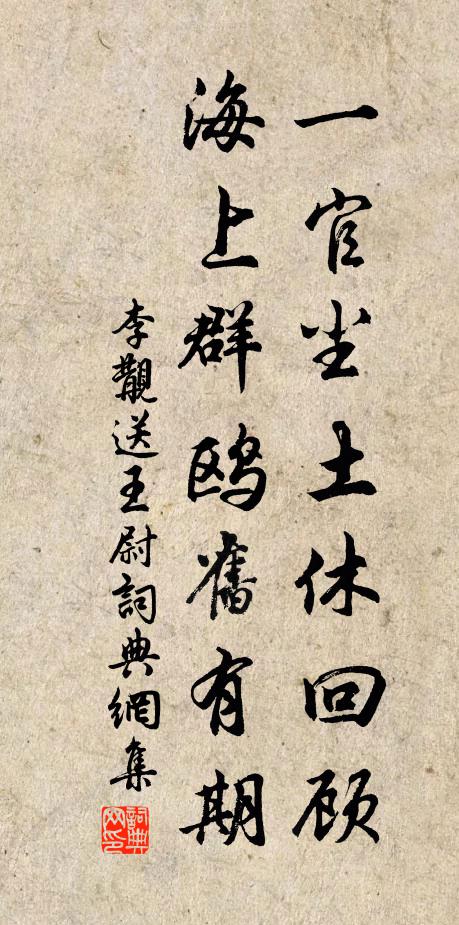 一官尘土休回顾
海上群鸥旧有期
李觏送王尉詞典網集
詞典网印